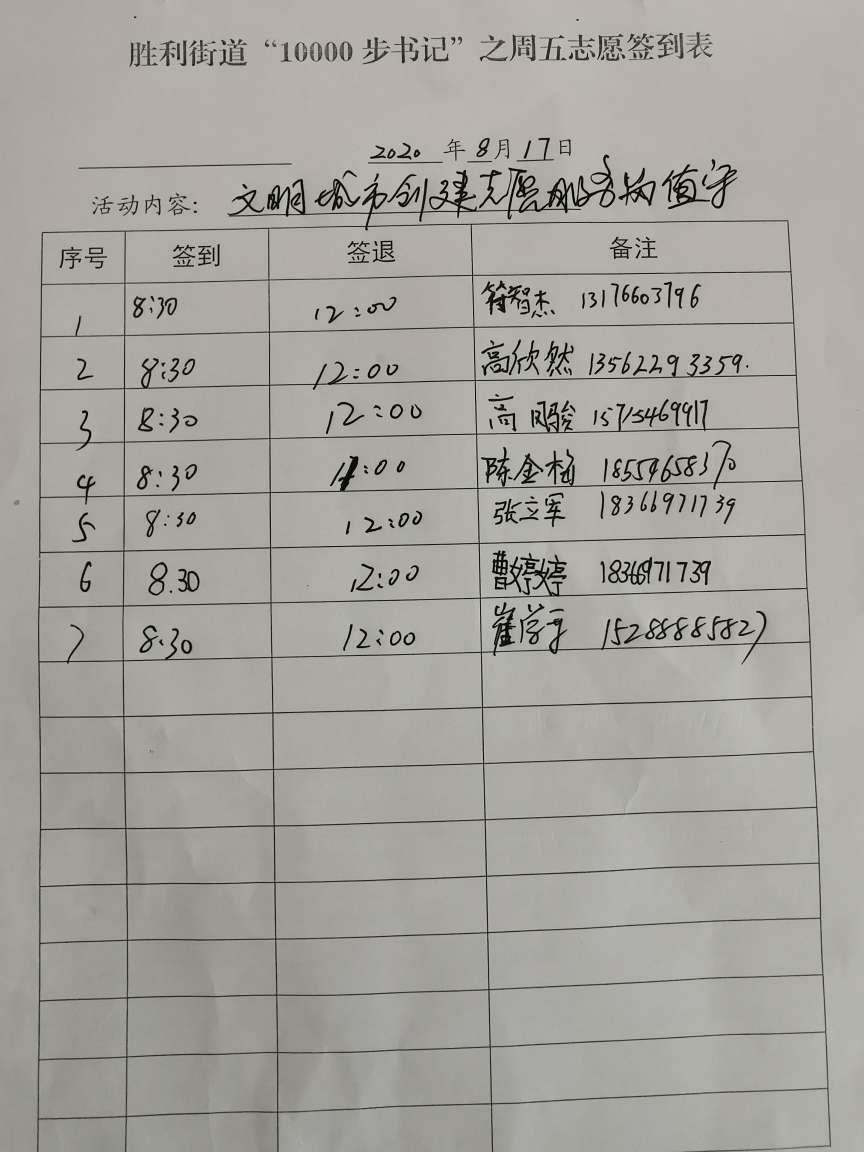 胜利街道“10000步书记”之周五志愿签到表
2020年8月17日
活动内容: 文明城市创建志愿服务岗值守
序号 签到 签退 备注
1 8:30 12:00 符智杰 13176603796
2 8:30 12:00 高欣然 13562293359.
3 8:30 12:00 高 骏 15715469917
4 8:30 :00 陈金梅 18554658370
5 8:30 12:00 张立军 18366971739
6 8.30 12:00 曹婷婷 18366971739
7 8:30 12:00 崔学 15288885827